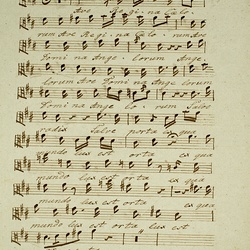 Ave Regina Celo-
rum Ave Regina Celorum Ave
Domina Angelorum Ange
lorum Ave Domina Angelorum
Domina Angelorum Salve
radix Salve porta ex qua
mundo lux est orta ex qua
mundo lux est orta
mundo lux est orta ex qua
mundo lux est orta